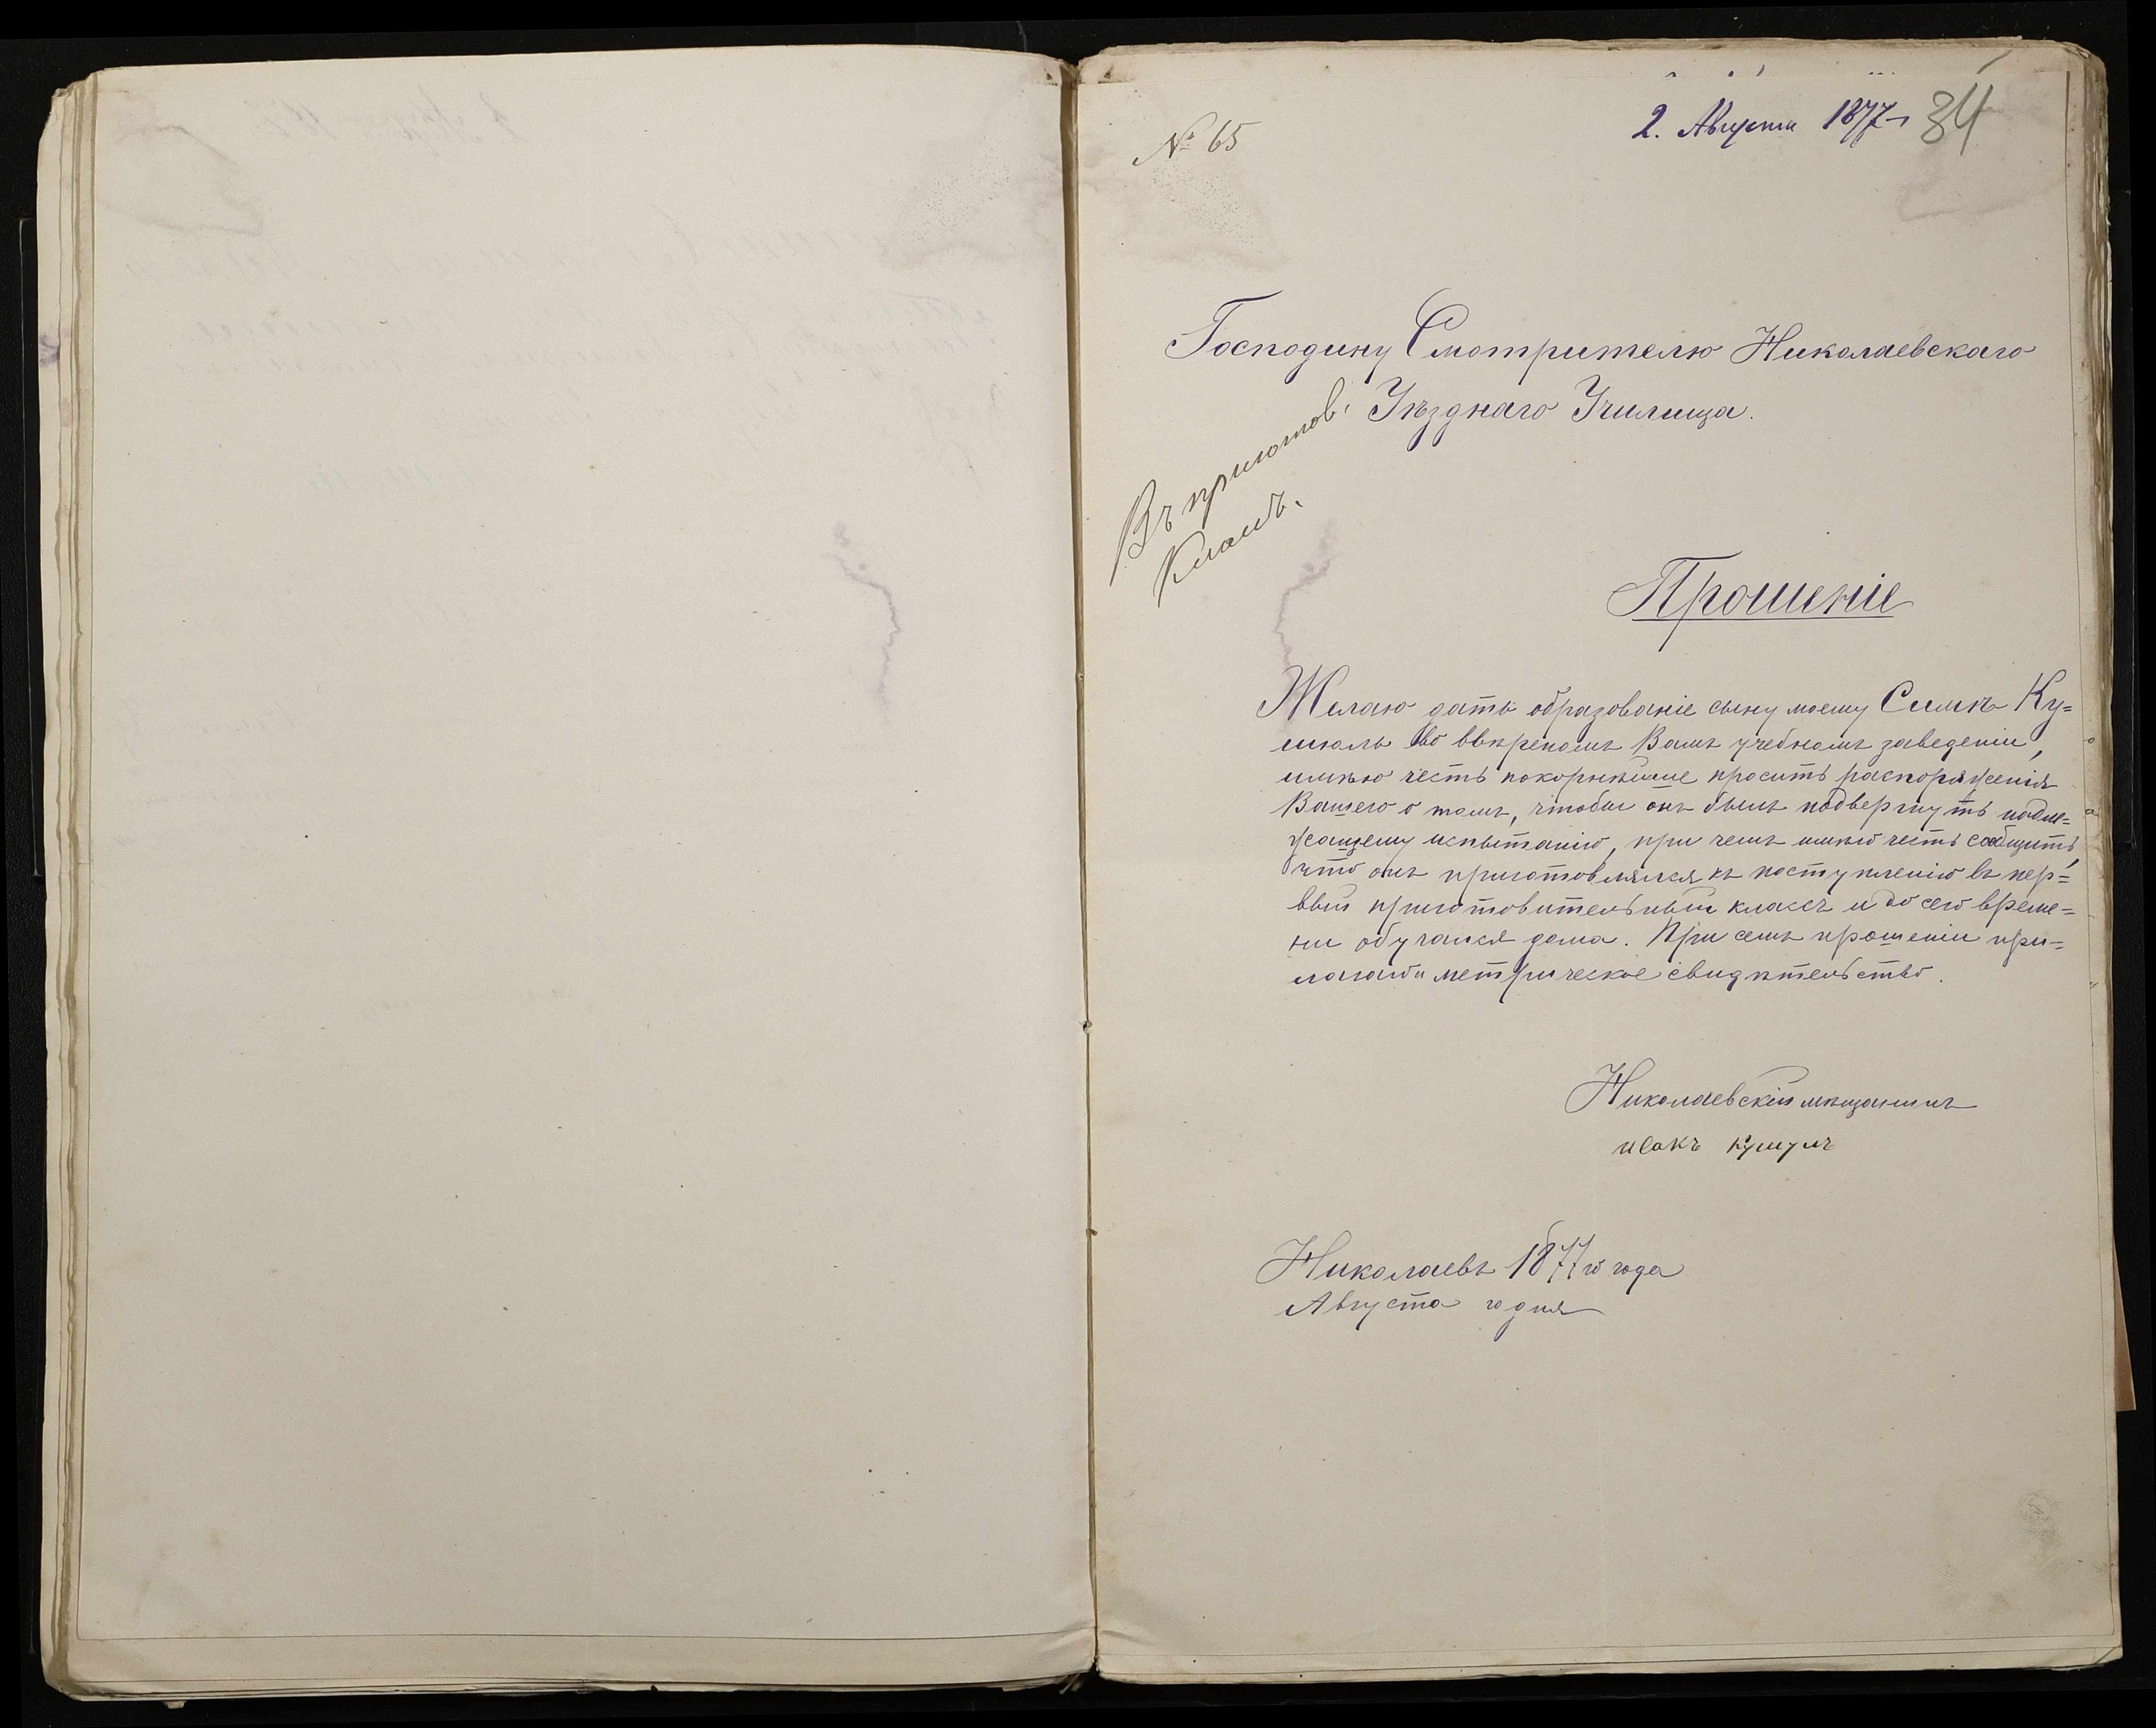 № 65
2. Августа 1877 г
34
Господину Смотрителю Николаевскаго
Уѣзднаго Училища.
Въ приготов.
классъ.
Прошеніе
Желаю дать образованіе сыну моему Симкѣ Ку=
шюль во ввѣреномъ Вамъ учебномъ заведеніи,
имѣю честь покорнѣйше просить распоряженія
Вашего о томъ, чтобы онъ былъ подвергнутъ надле=
жащему испытанію, при чемъ имѣю честь сообщить,
что онъ приготовлялся къ поступленію въ пер=
вый приготовительный классъ и до сего време=
ни обучался дома. При семъ прошеніи при=
лагаю метрическое свидѣтельство.
Николаевскій мѣщанинъ
исакъ кушулъ
Николаевъ 1877 го года
Августа го дня